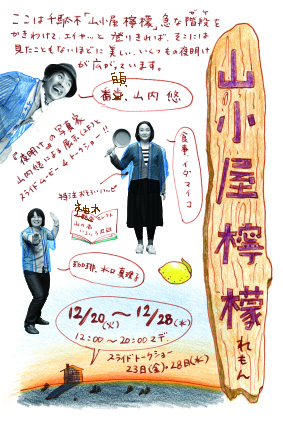 ここは千駄木「山小屋 檸檬」急な階段を
かきわけて、エイヤッと登りきれば、そこには
見たこともないほどに美しい、いくつもの夜明け
が広がっています。
山内 悠
「夜明け」の写真家
山内悠による展らん会と
スライドムービー&トークショー!!
食事、イダマイコ
珈琲、
山小屋檸檬
れもん
12/20(火)〜12/28(水)
12:00〜20:00マデ
スライドトークショー
23日(金)、28日(水)